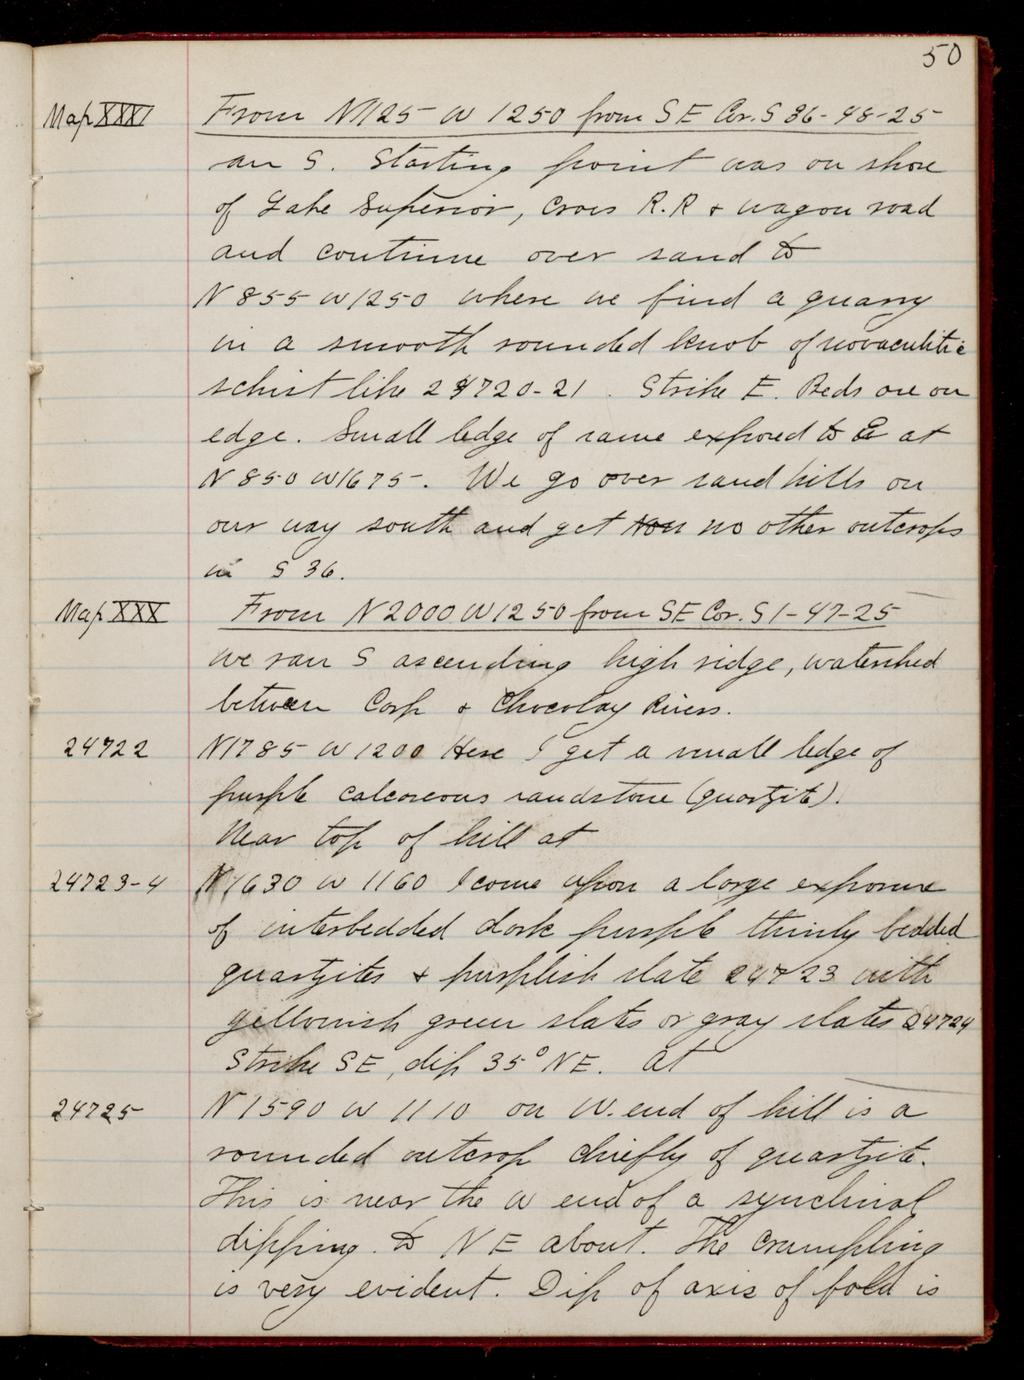 50
Map XXXI From N1125 W 1250 from SE Cor. S 36-48-25
ran S. Starting point was on shore
of Lake Superior, cross R.R + wagon road
and continue over sand to
N 855 W 1250 where we find a quarry
in a smooth rounded knob of novaculitic
schist like 24720-21. Strike E. Beds are on
edge. Small ledge of same exposed to E at
N 850 W 1675. We go over sand hills on
our way south and get no other outcrops
in S 36.
Map XXX From N 2000 W 1250 from SE Cor. S 1-47-25
we ran S ascending high ridge, watershed
between Carp + Chocolay Rivers.
24722 N1785 W 1200 Here I get a small ledge of
purple calcareous sandstone (quartzite).
Near top of hill at
24723-4 N 1630 W 1160 I come upon a large exposure
of interbedded dark purple thinly bedded
quartzites + purplish slate 24723 with
yellowish green slates or gray slates 24724
Strike SE, dip 35° NE. At
24725 N 1590 W 1110 on W. end of hill is a
rounded outcrop chiefly of quartzite.
This is near the W end of a synclinal
dipping to NE about. The crumpling
is very evident. Dip of axis of fold is